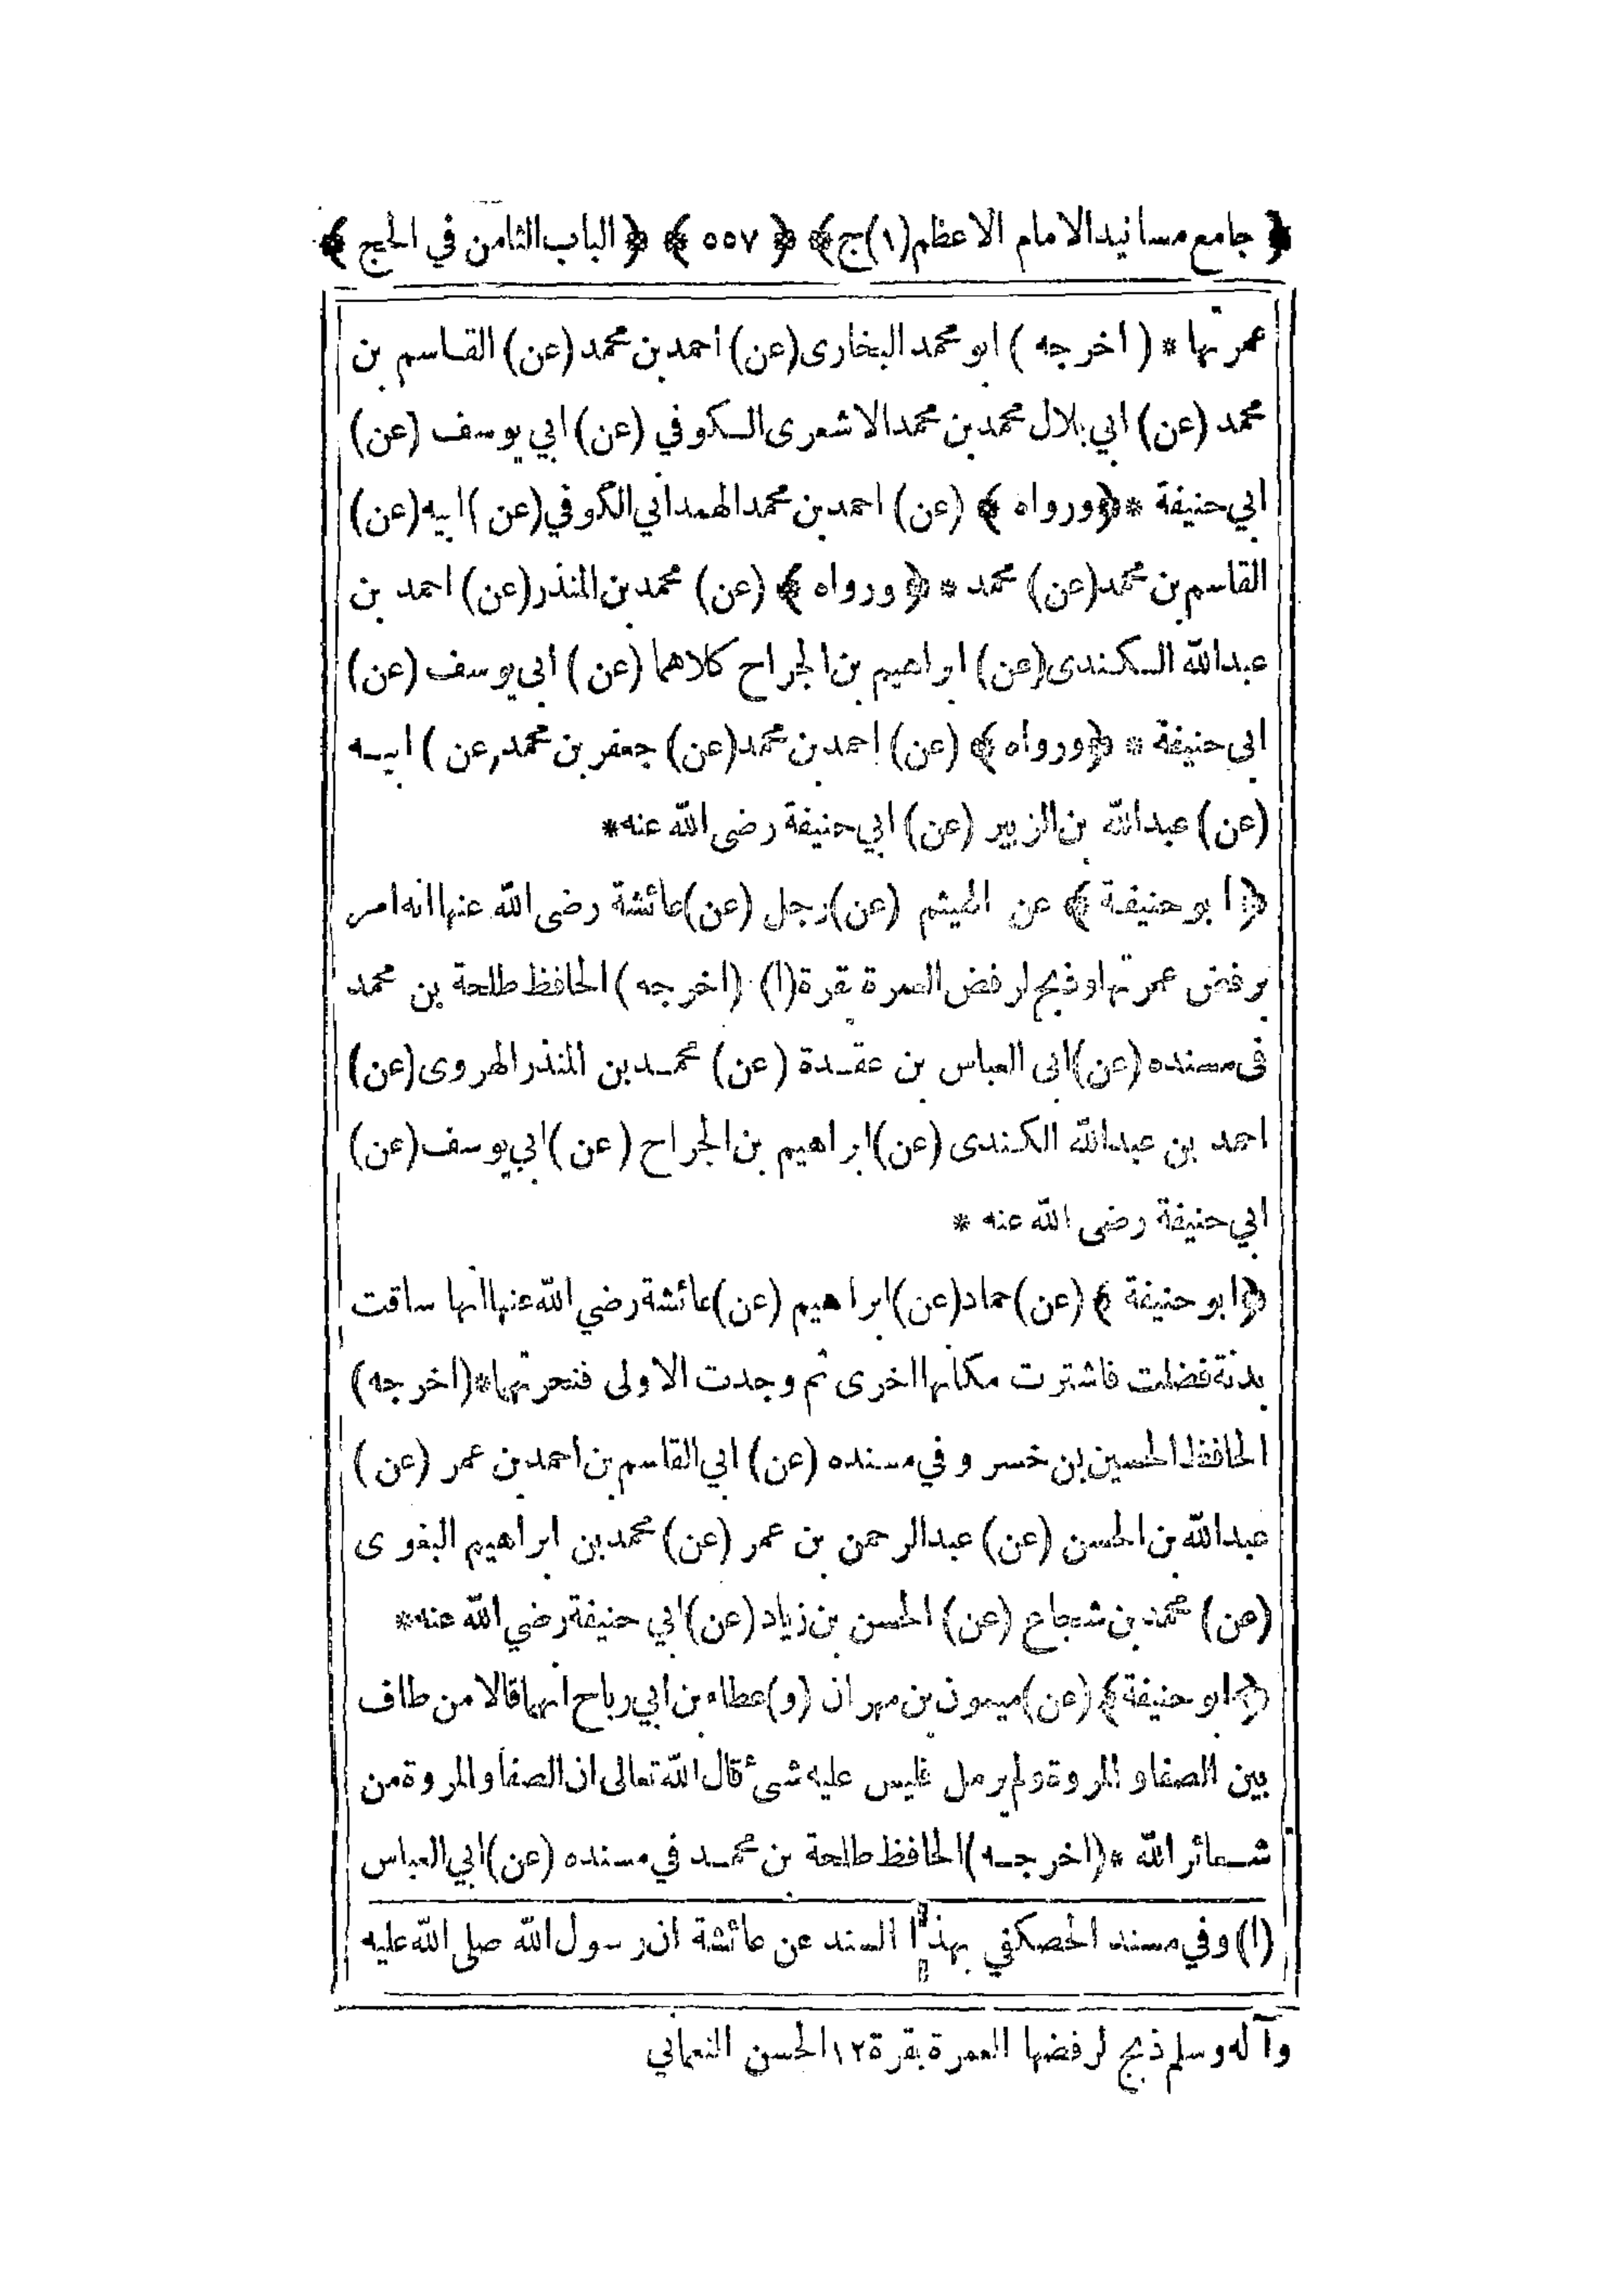 ﴿ جامع مسانيد الامام الاعظم (١) ج ﴾ ﴿ ٥٥٧ ﴾ ﴿ الباب الثامن في الحج ﴾
عمرتها * ( اخرجه ) ابو محمد البخارى (عن) احمد بن محمد (عن) القاسم بن
محمد (عن) ابي بلال محمد بن محمد الاشعرى الكوفي (عن) ابي يوسف (عن)
ابي حنيفة * ﴿ ورواه ﴾ (عن) احمد بن محمد الهمداني الكوفي (عن) ابيه (عن)
القاسم بن محمد (عن) محمد * ﴿ ورواه ﴾ (عن) محمد بن المنذر (عن) احمد بن
عبد الله الكندى (عن) ابراهيم بن الجراح كلاهما (عن) ابى يوسف (عن)
ابى حنيفة * ﴿ ورواه ﴾ (عن) احمد بن محمد (عن) جعفر بن محمد (عن) ابيه
(عن) عبد الله بن الزبير (عن) ابي حنيفة رضى الله عنه *
﴿ ابو حنيفة ﴾ عن الهيثم (عن) رجل (عن) عائشة رضى الله عنها انه امر
برفض عمرتها وذبح لرفض العمرة بقرة (١) (اخرجه) الحافظ طلحة بن محمد
فى مسنده (عن) ابى العباس بن عقدة (عن) محمد بن المنذر الهروى (عن)
احمد بن عبد الله الكندى (عن) ابراهيم بن الجراح (عن) ابي يوسف (عن)
ابي حنيفة رضى الله عنه *
﴿ ابو حنيفة ﴾ (عن) حماد (عن) ابراهيم (عن) عائشة رضي الله عنها انها ساقت
بدنة فضلت فاشترت مكانها اخرى ثم وجدت الاولى فنحرتهما * (اخرجه)
الحافظ الحسين بن خسرو في مسنده (عن) ابي القاسم بن احمد بن عمر (عن)
عبد الله بن الحسن (عن) عبد الرحمن بن عمر (عن) محمد بن ابراهيم البغوى
(عن) محمد بن شجاع (عن) الحسن بن زياد (عن) ابي حنيفة رضي الله عنه *
﴿ ابو حنيفة ﴾ (عن) ميمون بن مهران (و) عطاء بن ابي رباح انهما قالا من طاف
بين الصفا والمروة ولم يرمل فليس عليه شئ قال الله تعالى ان الصفا والمروة من
شعائر الله * (اخرجه) الحافظ طلحة بن محمد في مسنده (عن) ابي العباس
(١) وفي مسند الحصكفي بهذا السند عن عائشة ان رسول الله صلى الله عليه
وآله وسلم ذبح لرفضها العمرة بقرة ١٢ الحسن النعماني